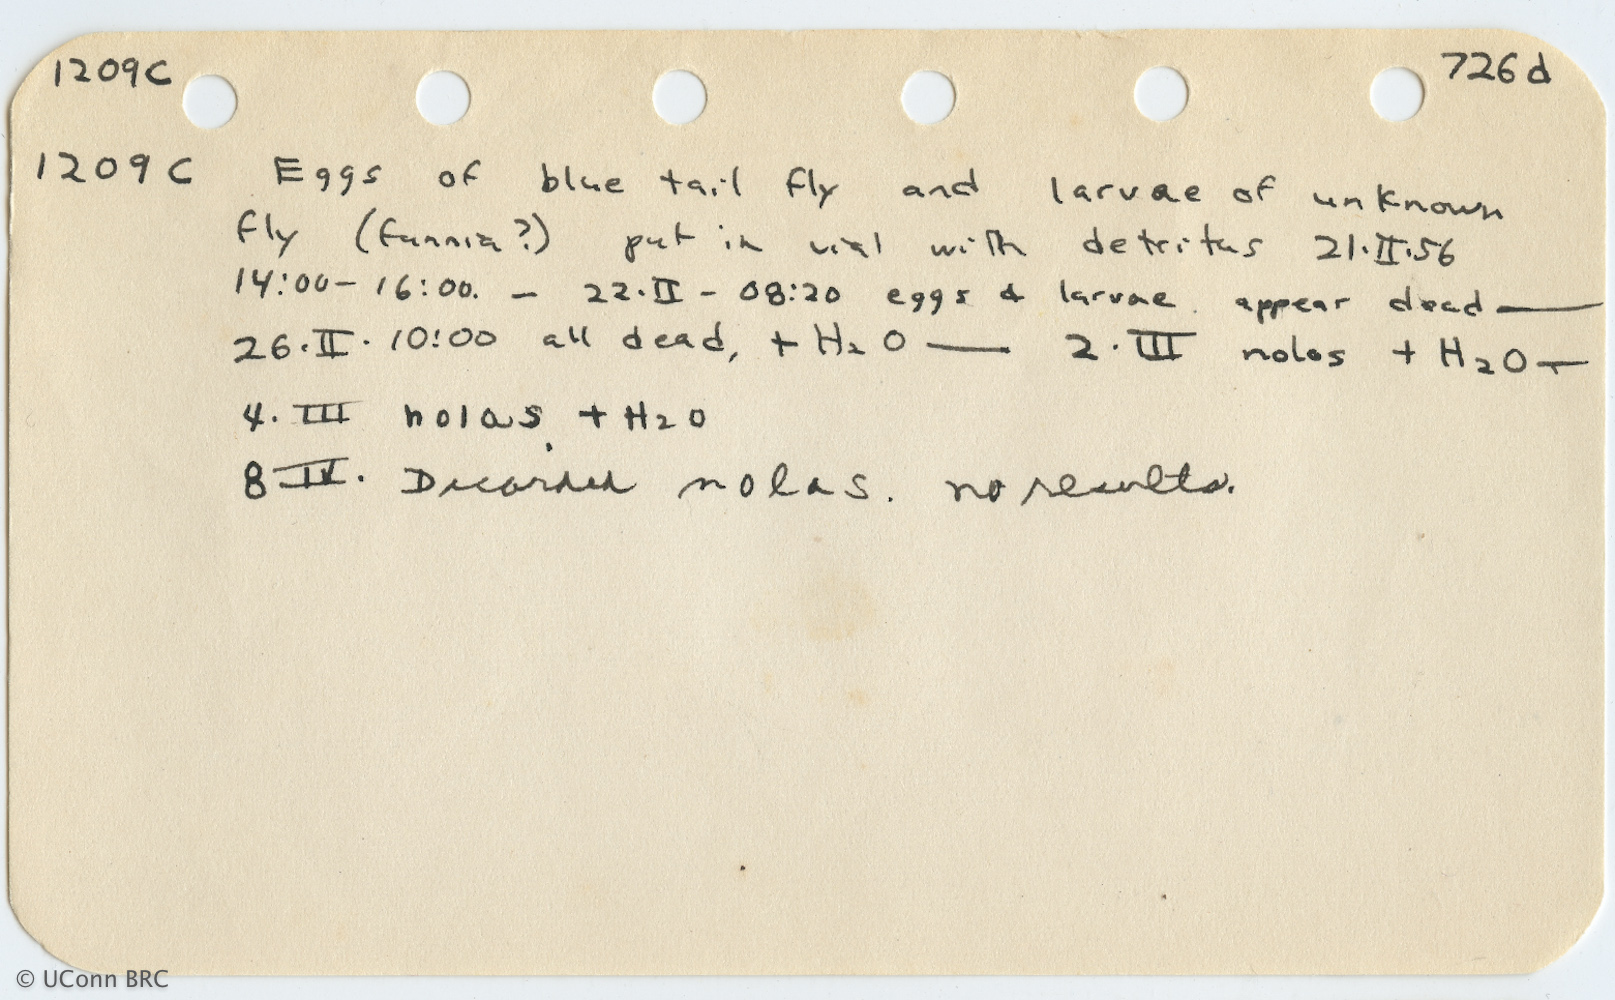 1209C 726d
1209C Eggs of blue tail fly and larvae of unknown
fly (fannia?) put in vial with detritus 21.II.56
14:00- 16:00. - 22.II - 08:20 eggs & larvae appear dead —
26.II. 10:00 all dead, + H2O — 2.III nolos + H2O —
4.III nolas + H2O
8 IV. nolas. no results.
© UConn BRC